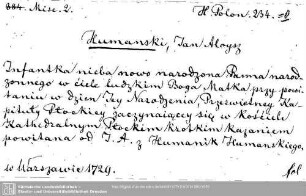 884. Misc. 2. H. Polon. 234.
Humanski, Jan Aloysz
Infantka nieba nowo narodzona Panna narod-
zonego w ciele ludzkim Boga Matka przy powi-
taniu w dzien Jey Narodzenia Przeswietney Ka-
pituły Płockiey zaczynaiącey się w Kościele
Kathedralnym Płockim krotkim kazaniem
powitana od J. A. z Humanik Humanskiego.
w Warszawie 1729. fol.